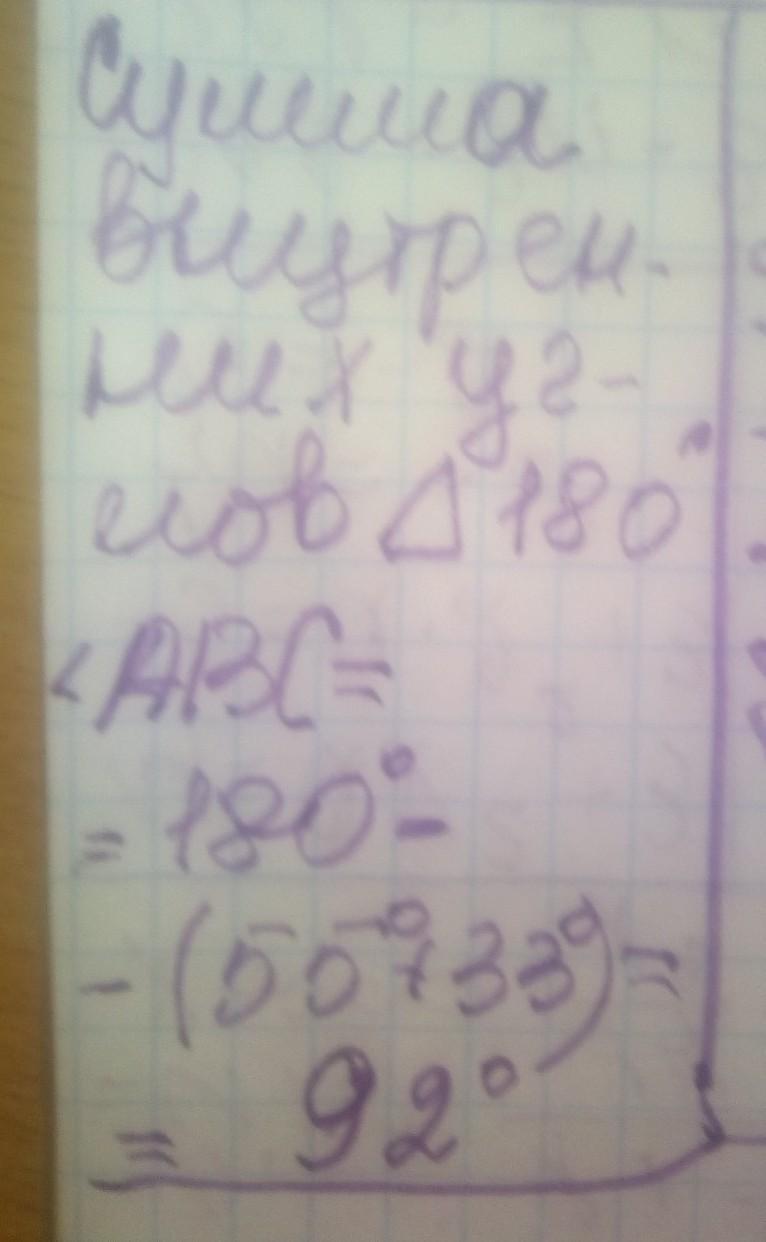 Сумма
внутрен-
них уг-
лов Δ 180°
<ABC=
= 180° -
- (55° + 33°) =
= 92°